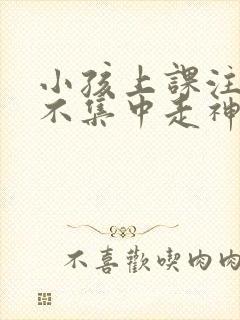 小孩上課注
不集中走神
不喜歡喫肉肉